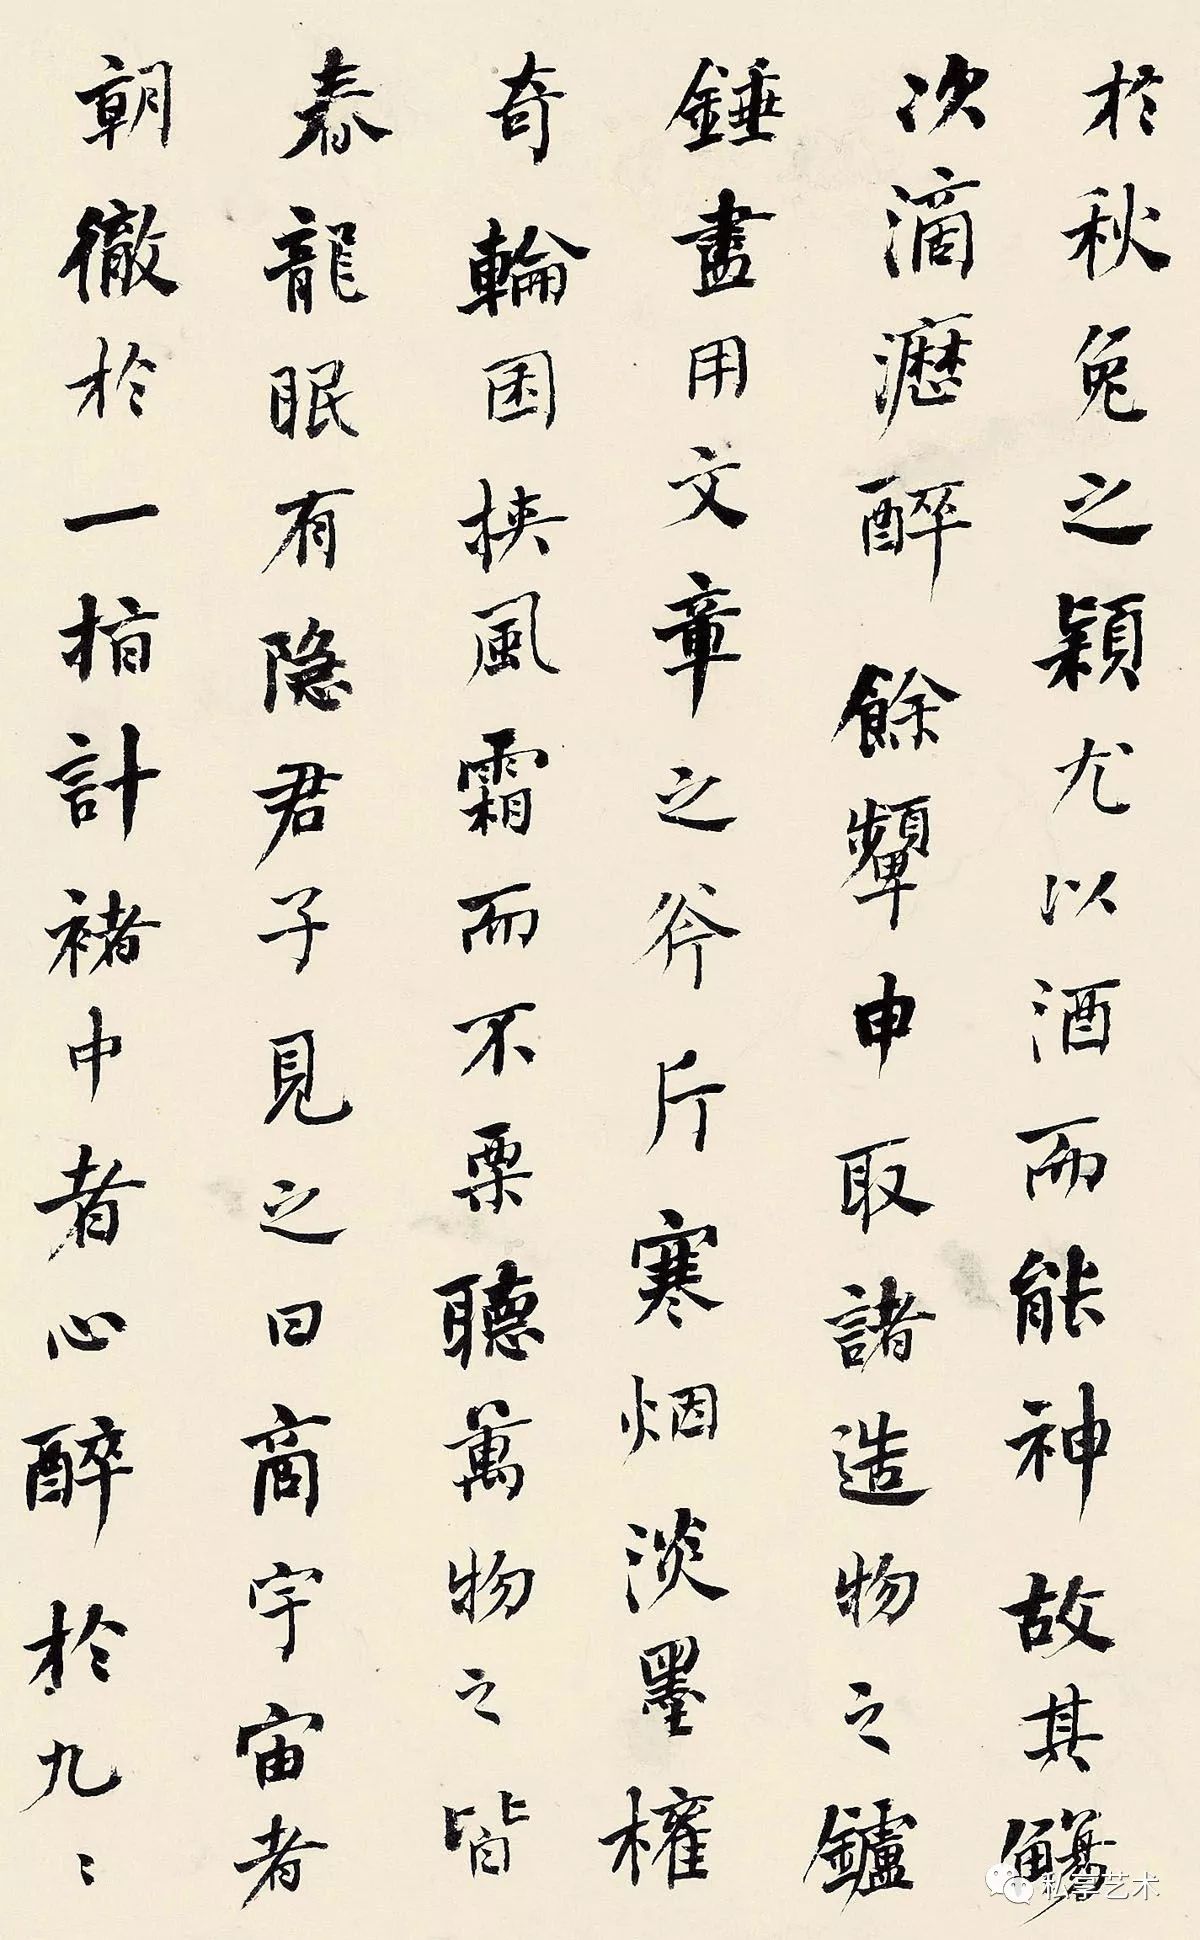 於秋兔之穎尤以酒而能神故其觴
次滴瀝醉餘顰申取諸造物之鑪
錘盡用文章之斧斤寒烟淡墨權
奇輪囷挟風霜而不栗聽萬物之皆
春龍眠有隐君子見之曰商宇宙者
朝徹於一指計褚中者心醉於九九
私享艺术